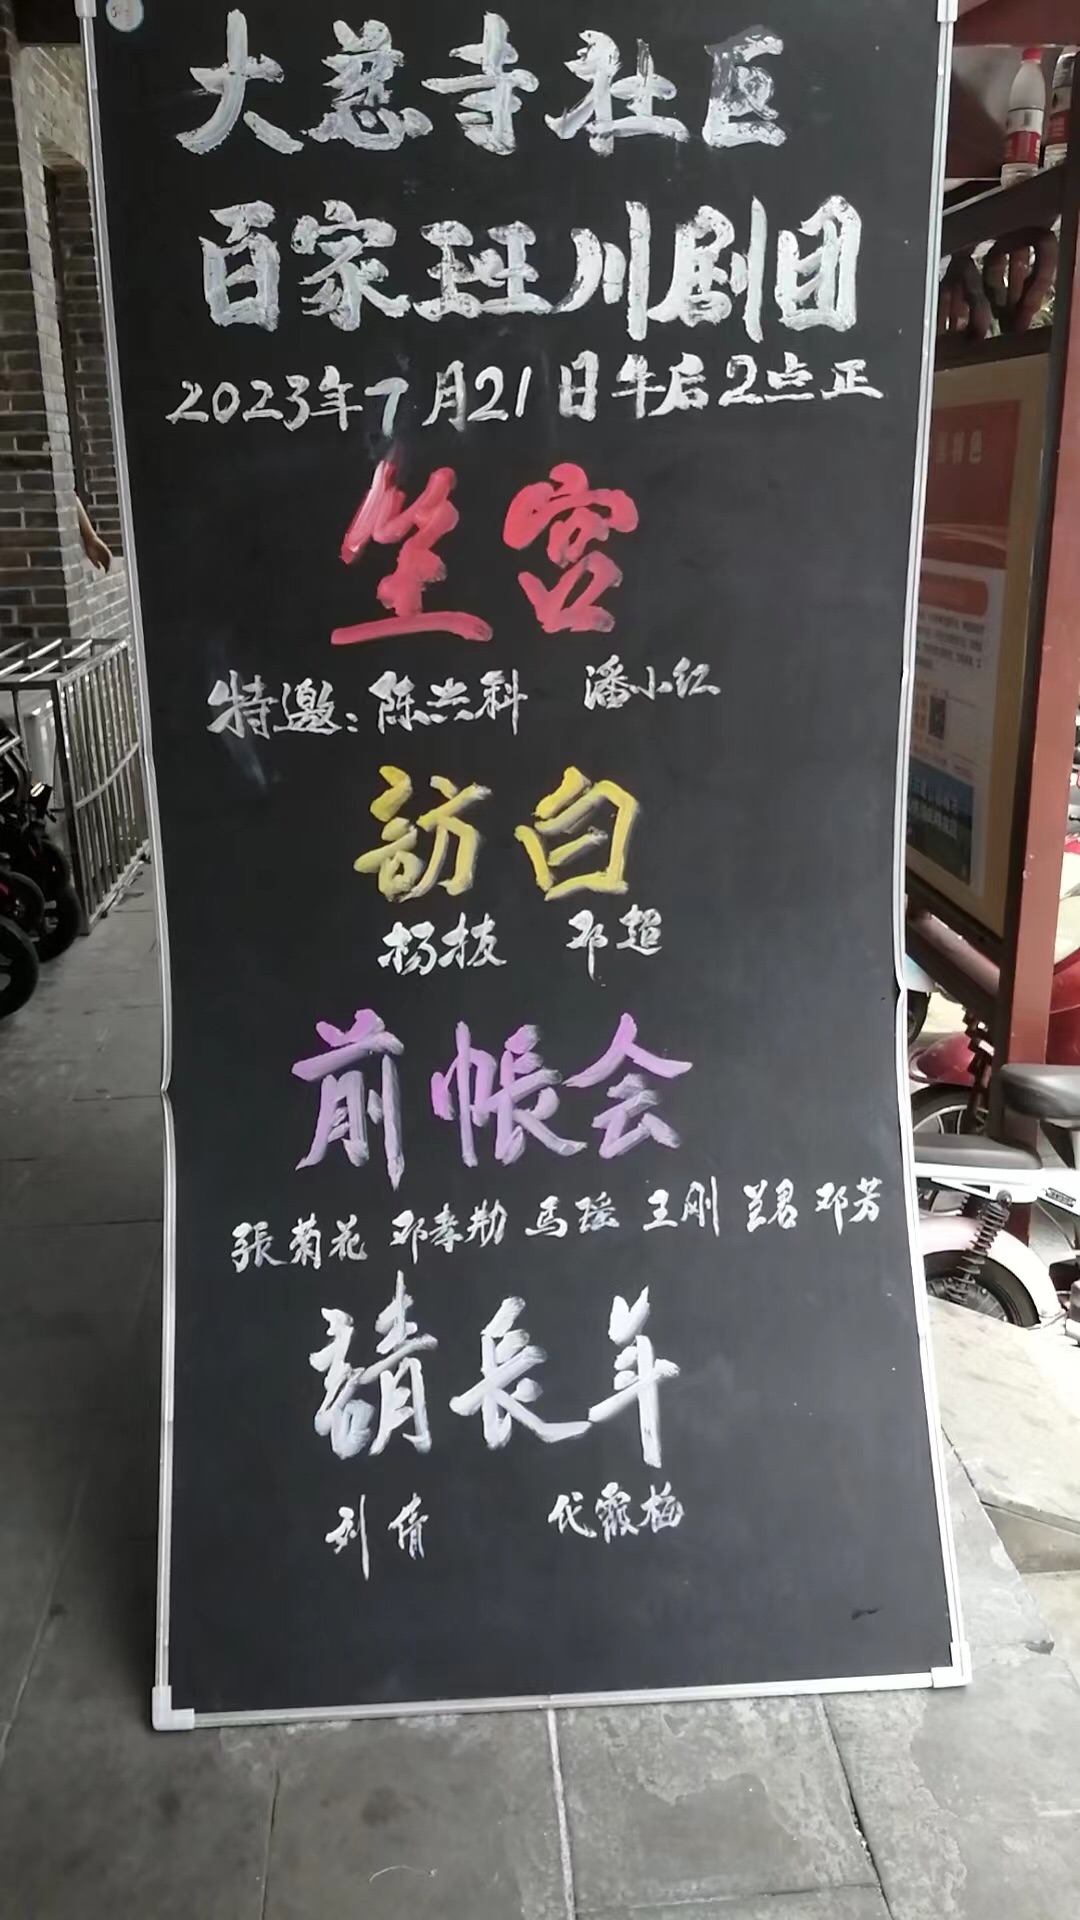 大慈寺社区
百家班川剧团
2023年7月21日午后2点正
坐宫
特邀:陈兴科 潘小红
訪白
杨披 邓超
前帐会
張菊花 邓孝勋 马瑶 王刚 兰君 邓芳
請長年
刘倩 代霞梅